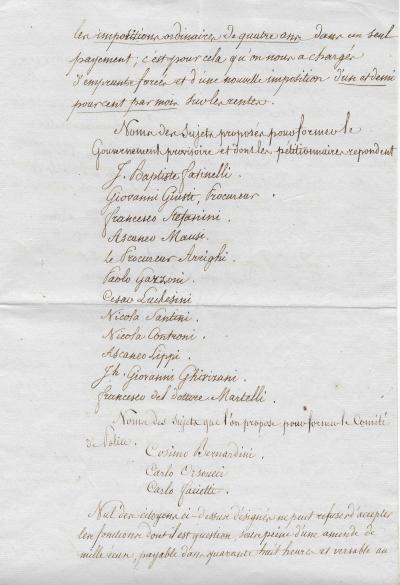 les impositions ordinaires de quatre ans dans un seul
payement; c'est pour cela qu'on nous a chargés
d'emprunts forcés et d'une nouvelle imposition d'un et demi
pour cent par mois sur les rentes.
Noms des Sujets proposés pour former le
Gouvernement provisoire et dont les pétitionnaires repondent
J. Baptiste Fatinelli.
Giovanni Giusti, Procureur.
Francesco Stefanini.
Ascaneo Mansi.
le Procureur Arrighi.
Paolo Garzoni.
Cesar Luchesini
Nicola Santini.
Nicola Controni.
Ascaneo Lippi.
Jh. Giovanni Ghivizani.
Francesco del dottore Martelli.
Noms des Sujets que l'on propose pour former le Comité
de Police.
Cosimo Bernardini.
Carlo Orsucci
Carlo
Nul des citoyens ci-dessus désignés ne peut refuser d'accepter
les fonctions dont il est question, sous peine d'une amende de
mille écus, payable dans quarante huit heures et versable au